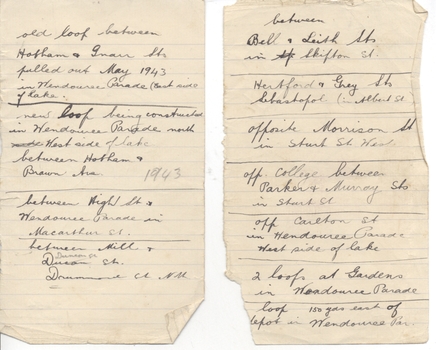 old loop between
Hotham & Gnarr Sts
pulled out May 1943
in Wendouree Parade (East side
of lake.
new loop being constructed
in Wendouree Parade north
West side of lake
between Hotham &
Brown Ava. 1943
between High St &
Wendouree Parade in
Macarthur St.
between Mill &
Duncan St
St.
Drummond St Nth
between
Bell & Leith Sts
in Skipton St.
Hertford & Grey Sts
Sebastopol (in Albert St
opposite Morrison St
in Sturt St West
opp. College between
Parker & Murray Sts
in Sturt St
opp Carlton St
in Wendouree Parade
West side of lake
2 loops at Gardens
in Wendouree Parade
loop 150 yds east of
depot in Wendouree Par